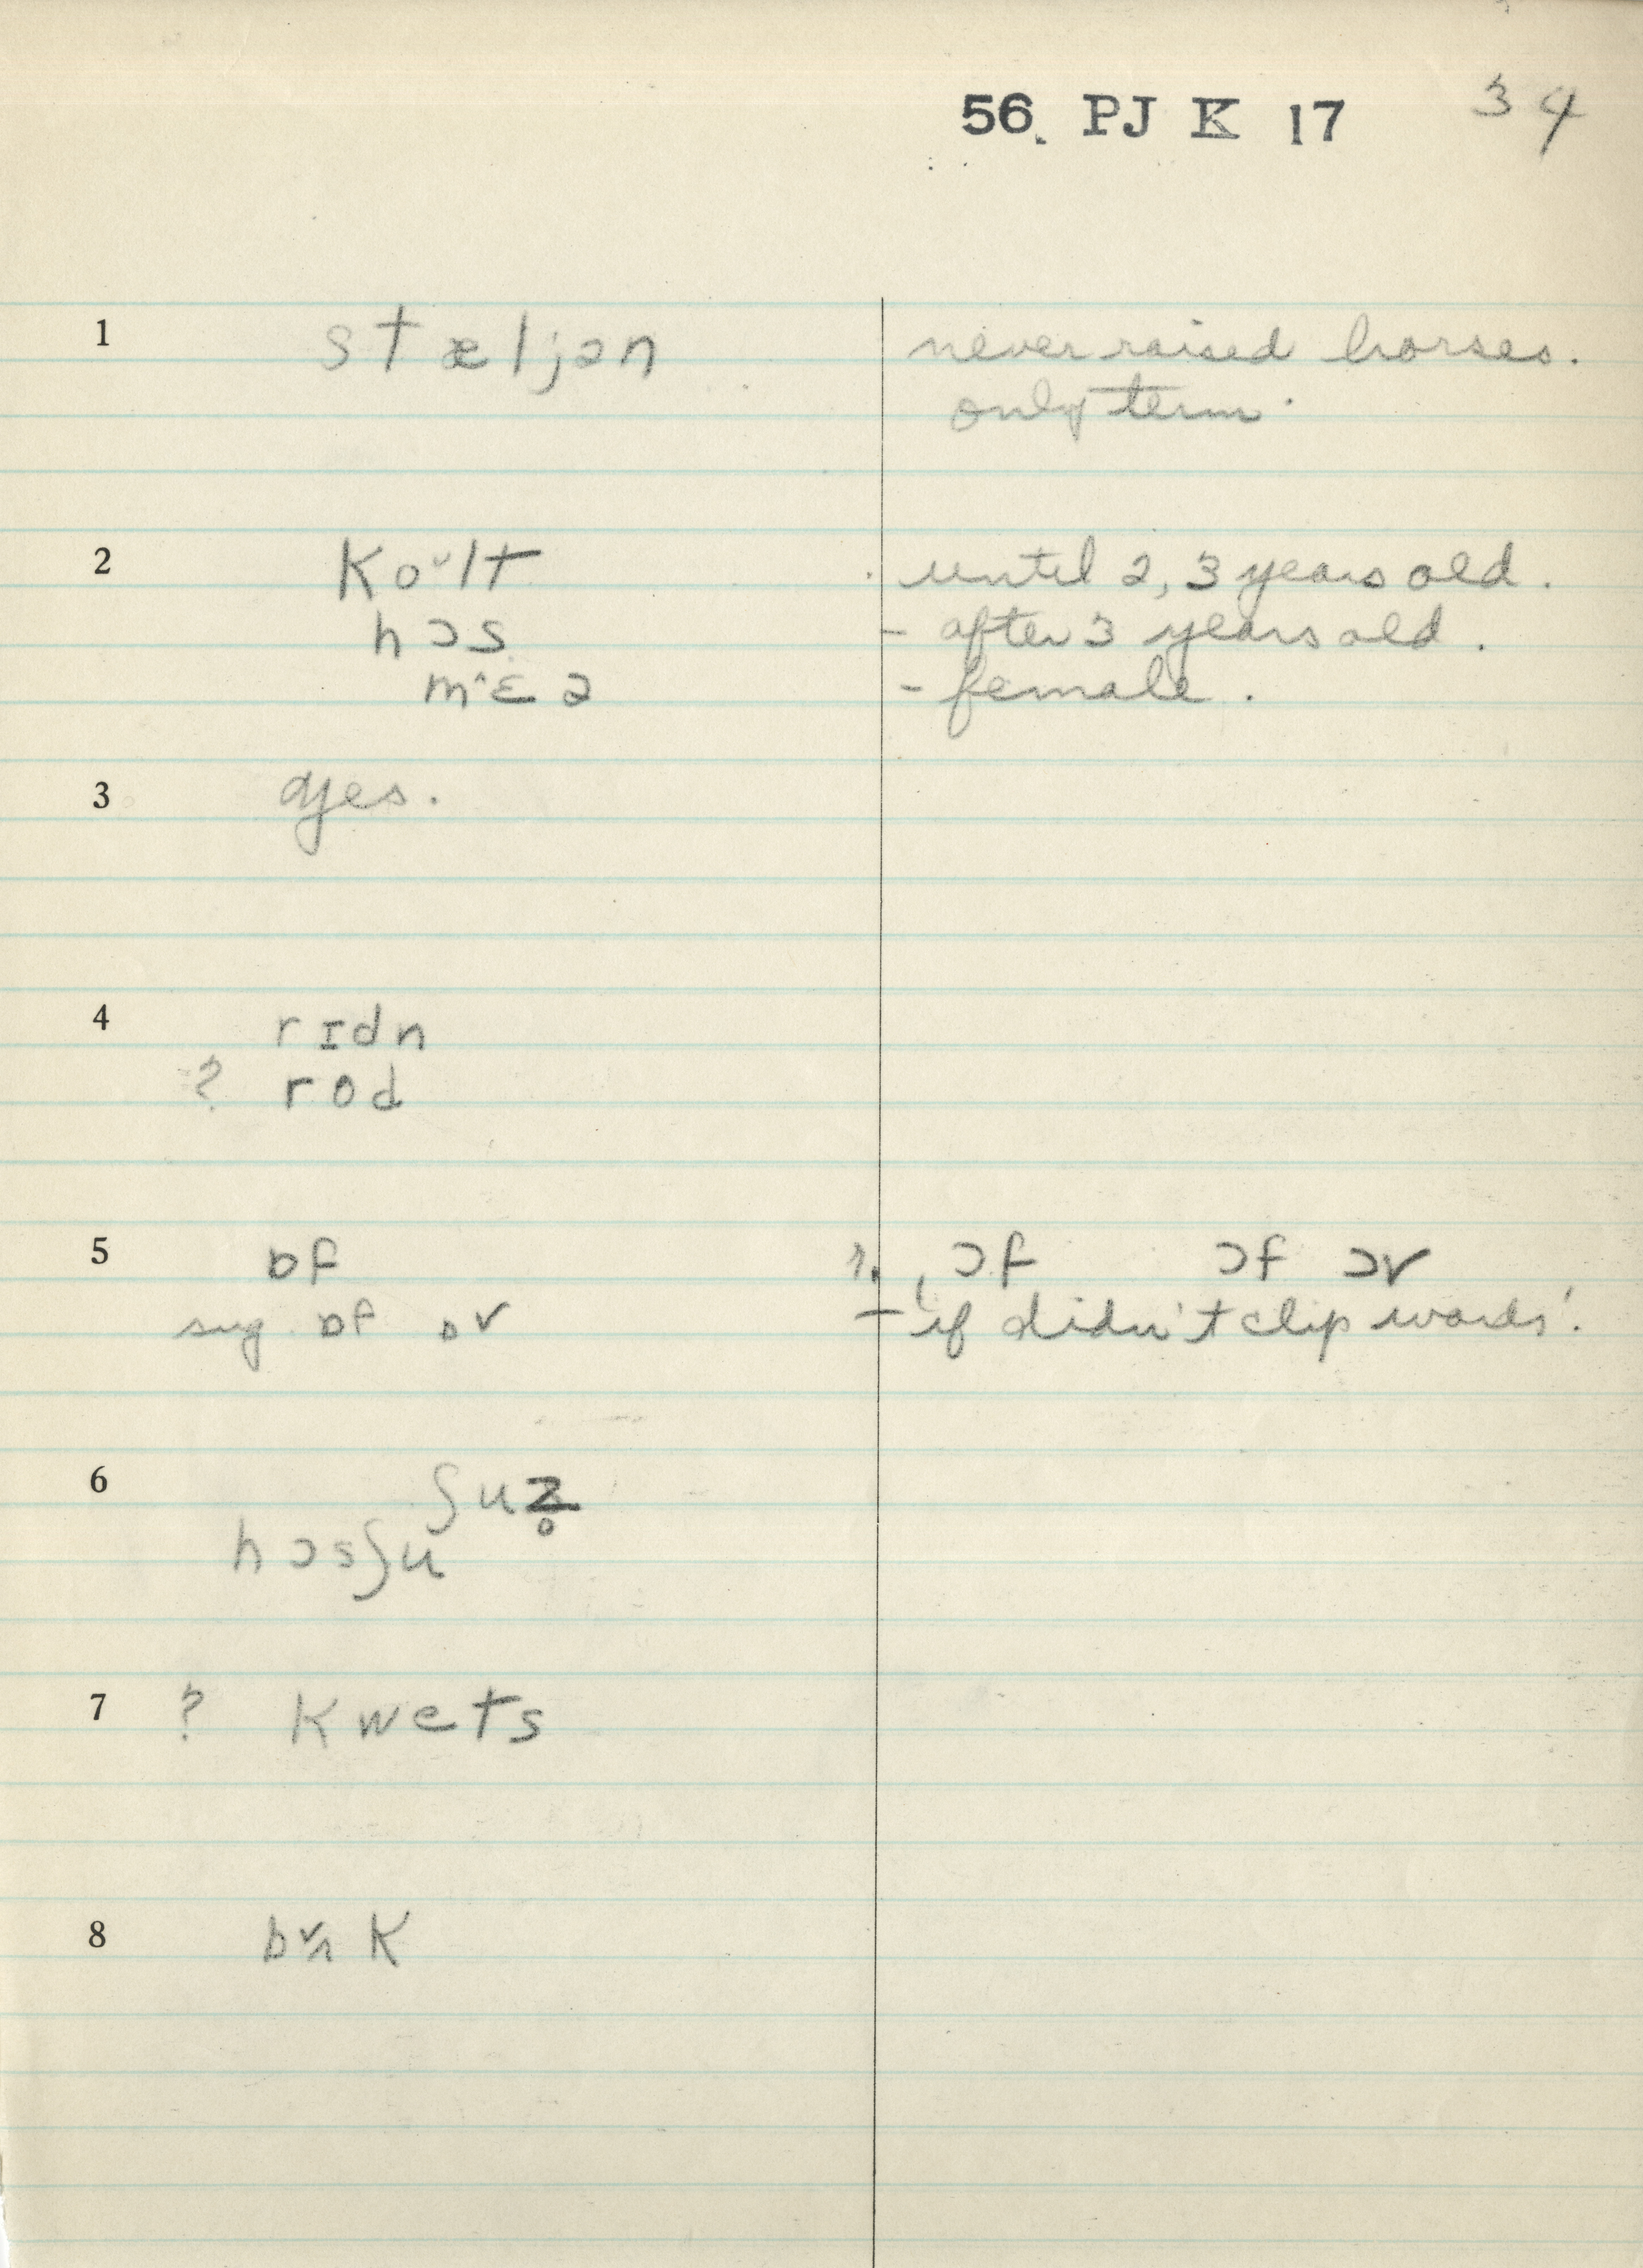 56. PJ K 17 34
1 stæljən never raised horses.
only term.
2 Koᵕlt until 2, 3 years old.
hɔs - after 3 years old.
m^ɛə - female.
3 yes.
4 rɪdn
? rod
5 ɒf ɔf ɔf ɔv
sug ɒf ɒv - 'if didn't clip words'.
6 ʃuz̥
hɔsʃu
7 ? Kwets
8 K